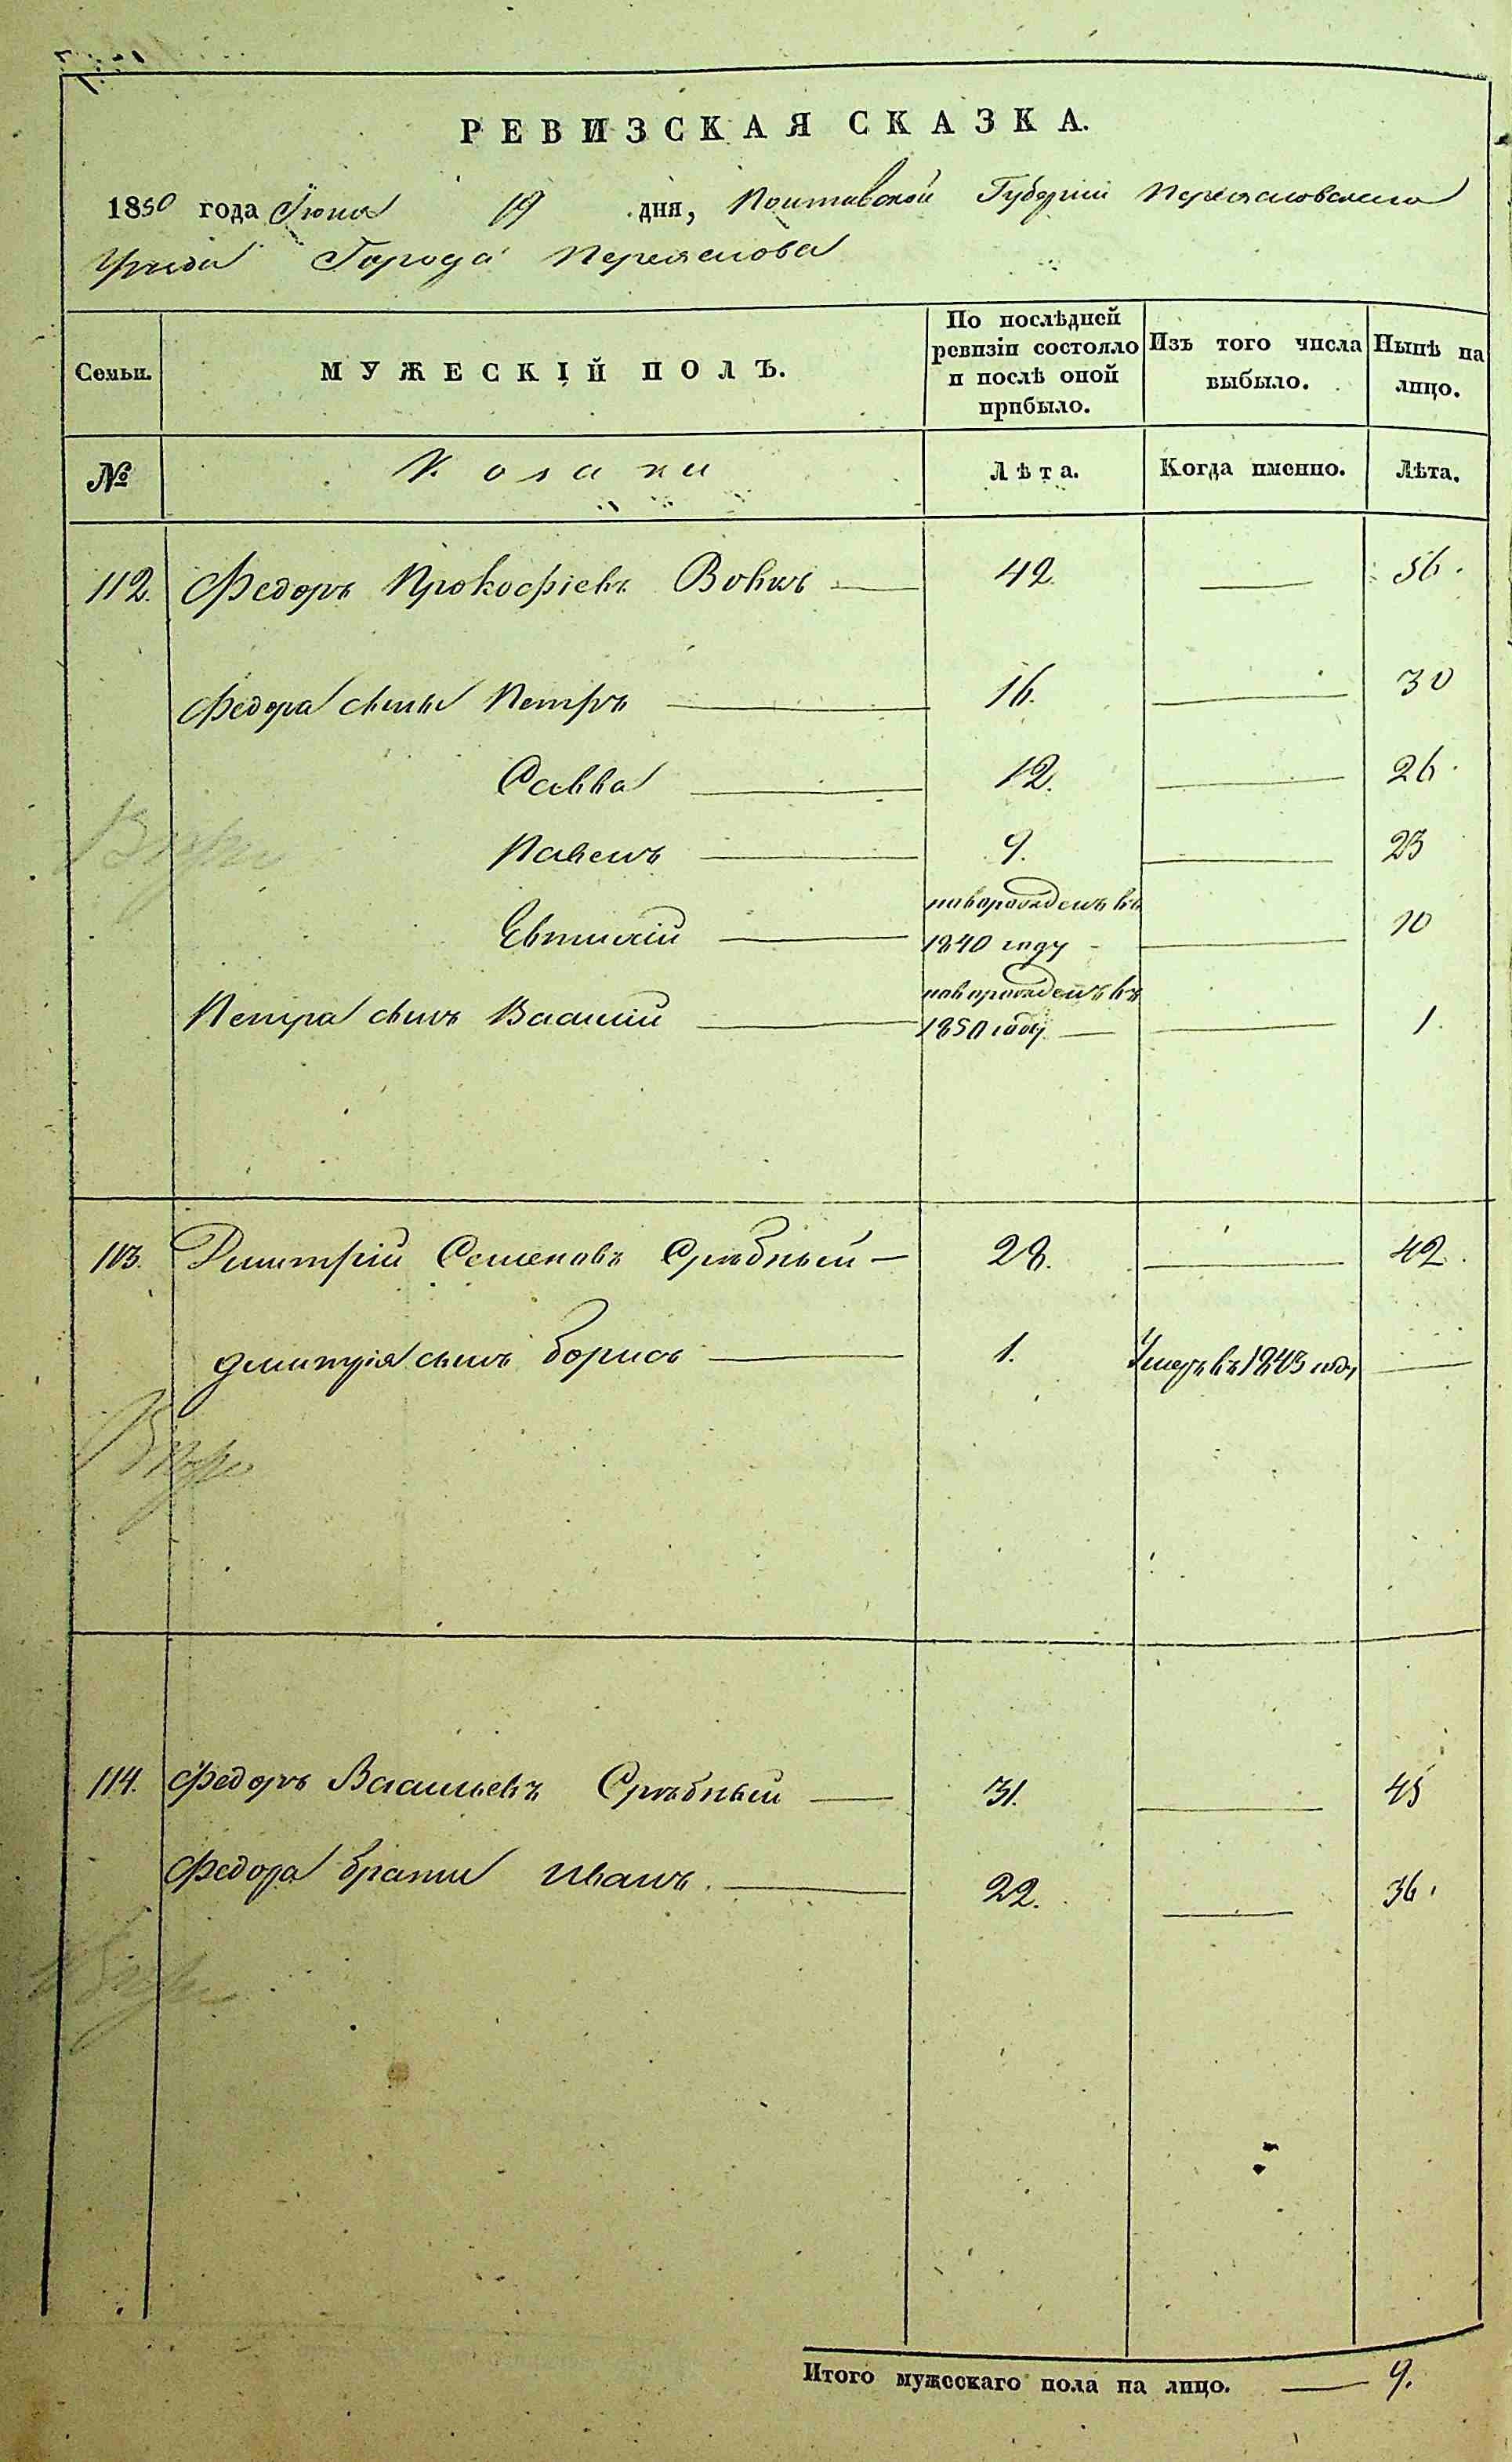 РЕВИЗСКАЯ СКАЗКА.
1850 года Іюня 19 дня, Полтавской Губерніи Переяславскаго
Уѣзда Города Переяслова
Семьи. МУЖЕСКІЙ ПОЛЪ. По послѣдней ревизіи состояло и послѣ оной прибыло. Изъ того числа выбыло. Нынѣ на лицо.
№ Козаки Лѣта. Когда именно. Лѣта.
112. Федоръ Прокофіевъ Вовкъ — 42. — 56.
Федора сыны Петръ — 16. — 30
Савва — 12. — 26.
Павелъ — 9. — 23
Евтихій — новорожденъ въ 1840 году — 10
Петра сынъ Василій — новорожденъ въ 1850 году — 1.
113. Дмитрій Семеновъ Срѣбный — 28. — 42.
Дмитрія сынъ Борисъ — 1. Умеръ въ 1843 году —
114. Федоръ Васильевъ Срѣбный — 31. — 45
Федора братъ Иванъ. — 22. — 36.
Итого мужескаго пола на лицо. — 9.